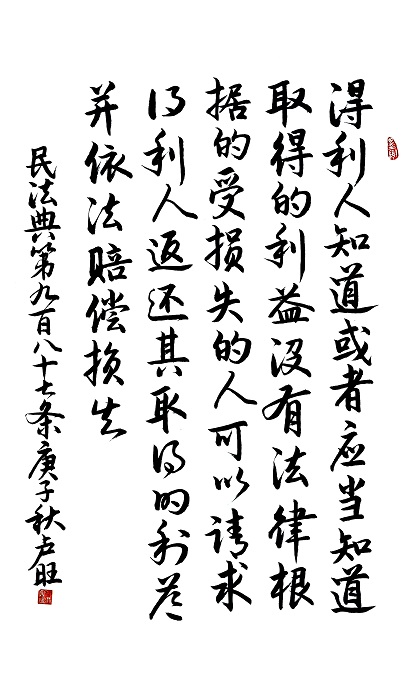 得利人知道或者应当知道
取得的利益没有法律根
据的受损失的人可以请求
得利人返还其取得的利益
并依法赔偿损失
民法典第九百八十七条庚子秋卢旺